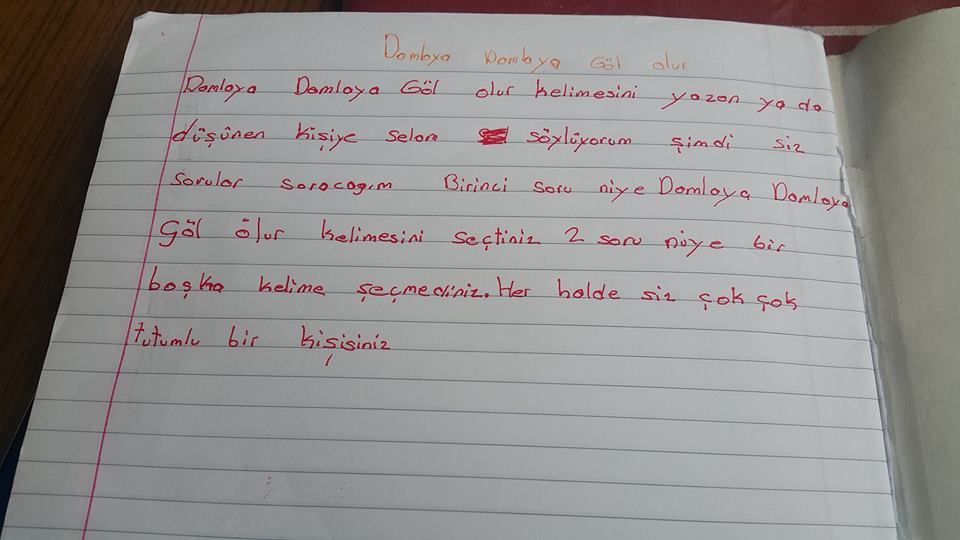 Damlaya Damlaya Göl olur
Damlaya Damlaya Göl olur kelimesini yazan ya da
düşünen kişiye selam söylüyorum şimdi siz
sorular soracagım Birinci soru niye Damlaya Damlaya
Göl ölur kelimesini seçtiniz 2 soru niye bir
başka kelime şeçmediniz. Her halde siz çok çok
tutumlu bir kişisiniz